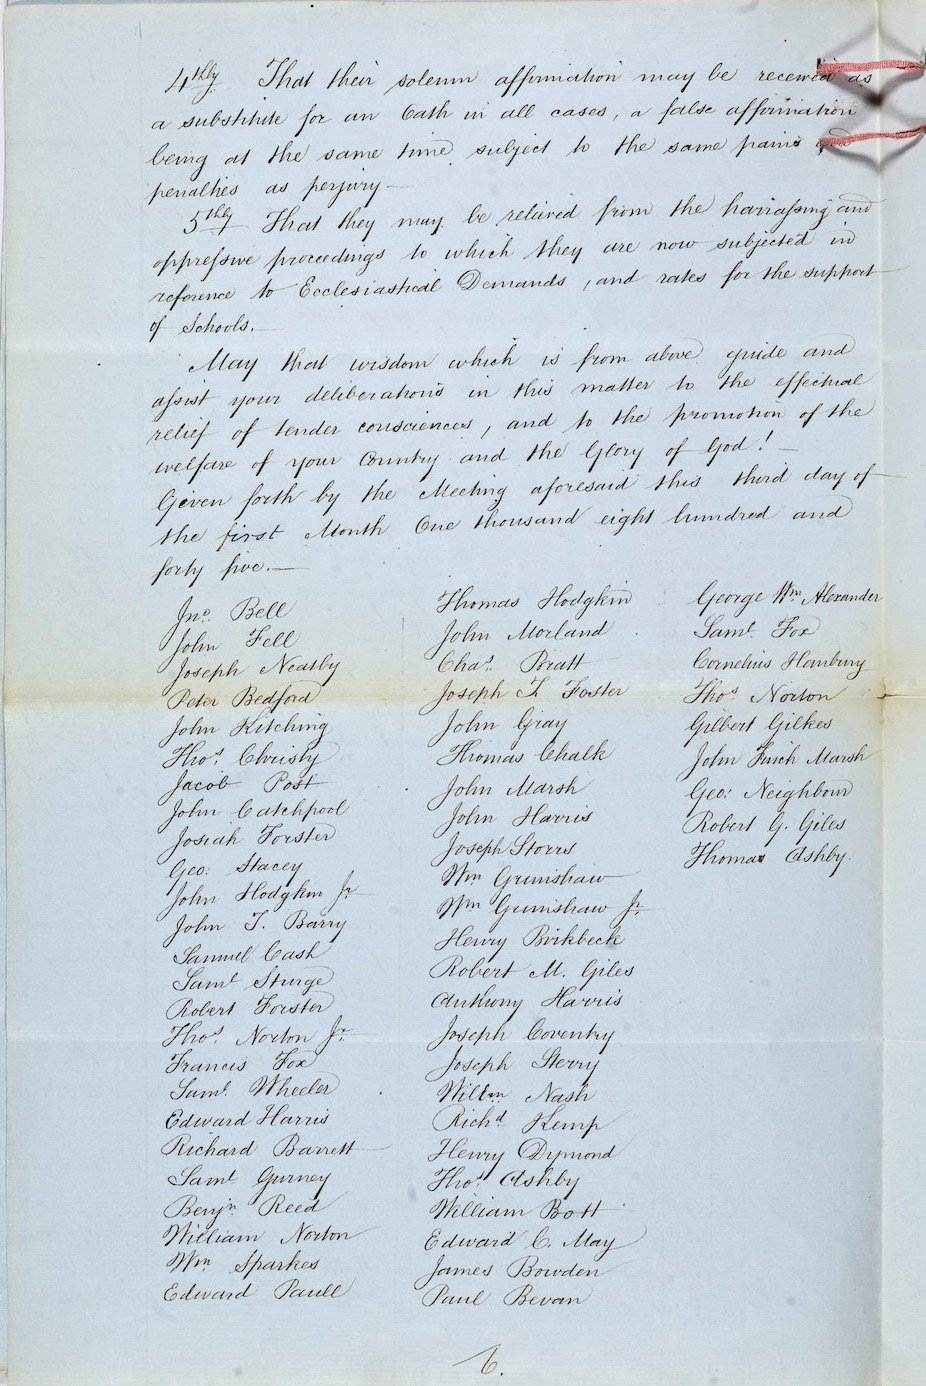 4thly That their solemn affirmation may be received as
a substitute for an Oath in all cases, a false affirmation
being at the same time subject to the same pains and
penalties as perjury —
5thly That they may be relieved from the harrassing and
oppressive proceedings to which they are now subjected in
reference to Ecclesiastical Demands, and rates for the support
of Schools. —
May that wisdom which is from above guide and
assist your deliberations in this matter to the effectual
relief of tender consciences, and to the promotion of the
welfare of your Country and the Glory of God! —
Given forth by the Meeting aforesaid this third day of
the first Month One thousand eight hundred and
forty five. —
Jno. Bell
John Fell
Joseph Neatby
Peter Bedford
John Kitching
Thos. Christy
Jacob Post
John Catchpool
Josiah Forster
Geo: Stacey
John Hodgkin Jr.
John T. Barry
Samuel Cash
Saml Sturge
Robert Forster
Thos. Norton Jr.
Francis Fox
Saml. Wheeler
Edward Harris
Richard Barrett
Saml Gurney
Benjn Reed
William Norton
Wm Sparkes
Edward Paull
Thomas Hodgkin
John Morland
Chas. Pratt
Joseph T. Foster
John Gray
Thomas Chalk
John Marsh
John Harris
Joseph Storrs
Wm Grimshaw
Wm Grimshaw Jr.
Henry Birkbeck
Robert M. Giles
Anthony Harris
Joseph Coventry
Joseph Sterry
Willm Nash
Richd Kemp
Henry Dymond
Thos. Ashby
William Bott
Edward C. May
James Bowden
Paul Bevan
George Wm. Alexander
Saml. Fox
Cornelius Hanbury
Thos Norton
Gilbert Gilkes
John Finch Marsh
Geo: Neighbour
Robert G. Giles
Thomas Ashby.
6.